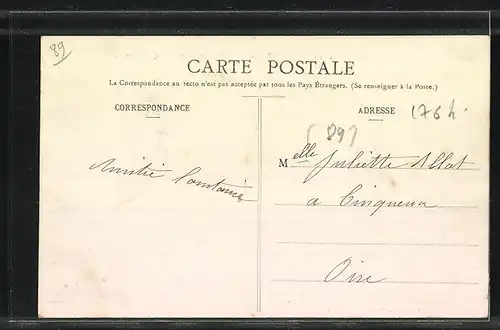 89
CARTE POSTALE
La Correspondance au recto n'est pas acceptée par tous les Pays Étrangers. (Se renseigner à la Poste.)
CORRESPONDANCE
ADRESSE
176 h.
(89)
Amitié Constance
Melle Juliette Allot
a Cinqueux
Oise